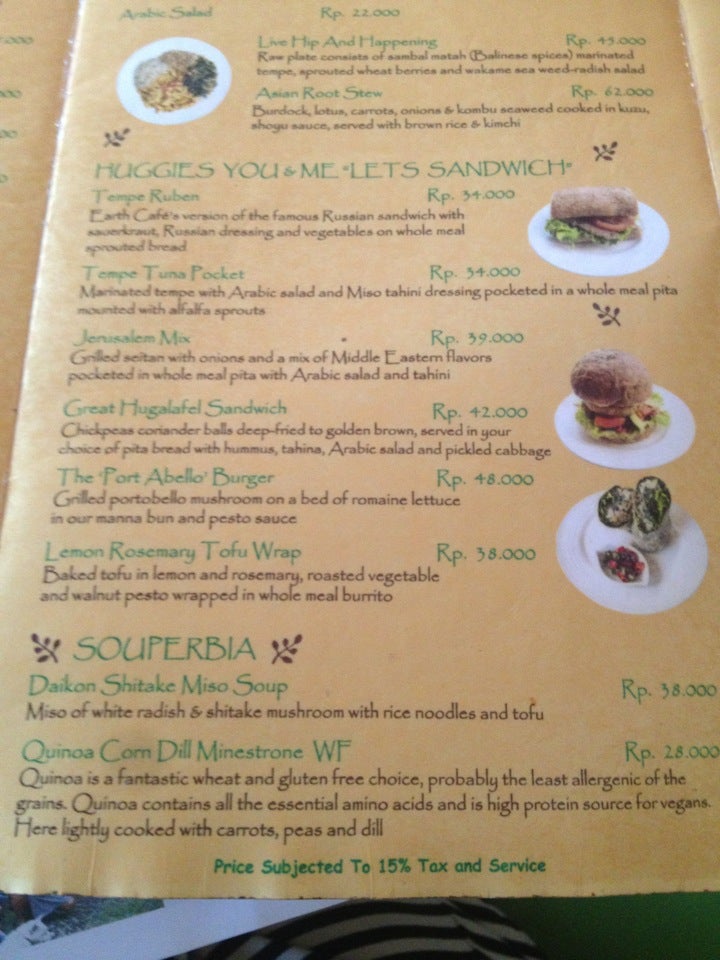 Arabic Salad Rp. 22.000
Live Hip And Happening Rp. 45.000
Raw plate consists of sambal matah (Balinese spices) marinated
tempe, sprouted wheat berries and wakame sea weed-radish salad
Asian Root Stew Rp. 62.000
Burdock, lotus, carrots, onions & kombu seaweed cooked in kuzu,
shoyu sauce, served with brown rice & kimchi
HUGGIES YOU & ME "LETS SANDWICH"
Tempe Ruben Rp. 34.000
Earth Café's version of the famous Russian sandwich with
sauerkraut, Russian dressing and vegetables on whole meal
sprouted bread
Tempe Tuna Pocket Rp. 34.000
Marinated tempe with Arabic salad and Miso tahini dressing pocketed in a whole meal pita
mounted with alfalfa sprouts
Jerusalem Mix Rp. 39.000
Grilled seitan with onions and a mix of Middle Eastern flavors
pocketed in whole meal pita with Arabic salad and tahini
Great Hugalafel Sandwich Rp. 42.000
Chickpeas coriander balls deep-fried to golden brown, served in your
choice of pita bread with hummus, tahina, Arabic salad and pickled cabbage
The 'Port Abello' Burger Rp. 48.000
Grilled portobello mushroom on a bed of romaine lettuce
in our manna bun and pesto sauce
Lemon Rosemary Tofu Wrap Rp. 38.000
Baked tofu in lemon and rosemary, roasted vegetable
and walnut pesto wrapped in whole meal burrito
SOUPERBIA
Daikon Shitake Miso Soup Rp. 38.000
Miso of white radish & shitake mushroom with rice noodles and tofu
Quinoa Corn Dill Minestrone WF Rp. 28.000
Quinoa is a fantastic wheat and gluten free choice, probably the least allergenic of the
grains. Quinoa contains all the essential amino acids and is high protein source for vegans.
Here lightly cooked with carrots, peas and dill
Price Subjected To 15% Tax and Service